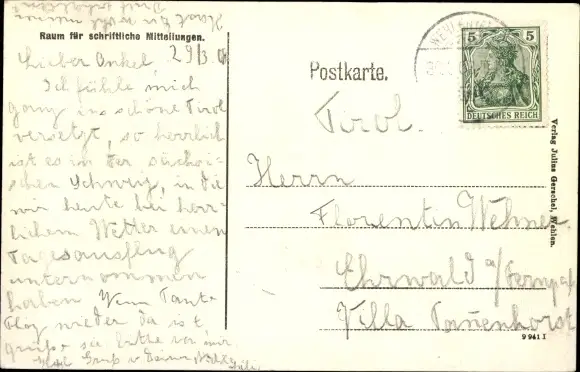 Raum für schriftliche Mitteilungen.
29/3
Lieber Onkel,
Ich fühle mich
ganz ins schöne Tirol
versetzt, so herrlich
ist es in der sächsi-
schen Schweiz, in die
wir heute bei herr-
lichem Wetter einen
Tagesausflug
unternommen
haben Wenn Tante
wieder da ist,
grüße sie bitte von mir.
Postkarte.
5 5
DEUTSCHES REICH
Tirol.
Herrn
Florentin Wehner
Ehrwald
Villa Tannenhorst
Verlag Julius Gerschel, Wehlen.
9941 I